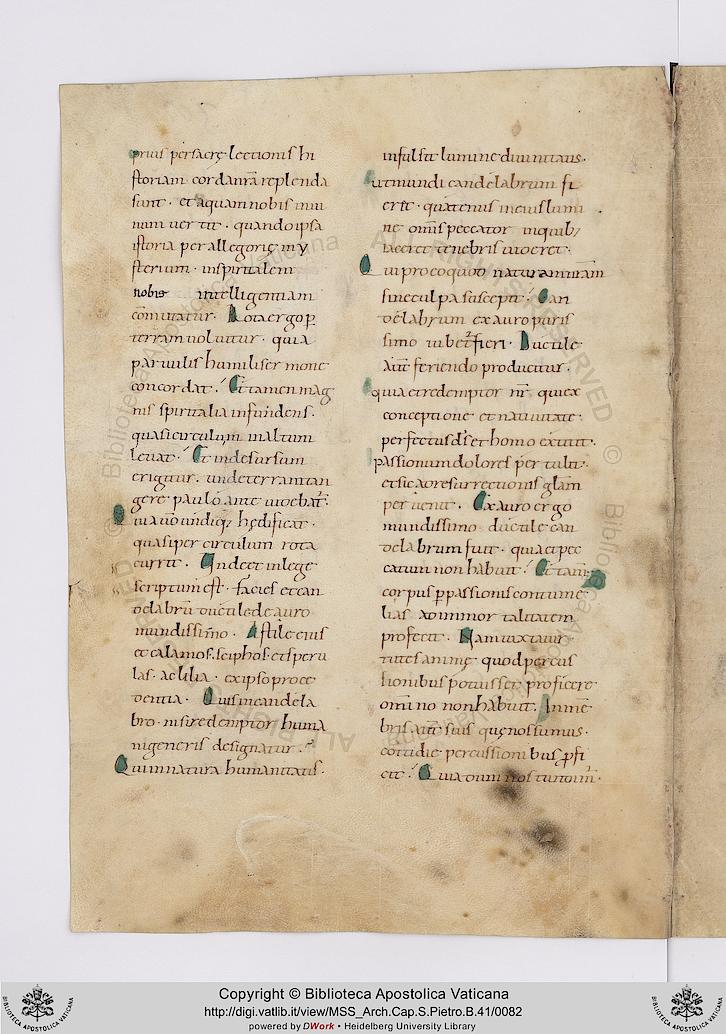 prius per sacrę lectionis hi
storiam corda nr̄a replenda
sunt · et aqua in nobis in ui
num uertit · quando ipsa
istoria per allegorię my
sterium · in spiritalem
nobis intelligentiam
com̄utatur · Rota ergo ꝑ
terram uoluitur · quia
paruulis humiliser mone
concordat · Et tamen mag
nis spiritalia infundens ·
quasi circulum in altum
leuat · Et inde sursum
erigitur · unde terram tan
gere paulo ante uidebat̄ ·
Quia ū undiq; hędificat ·
quasi per circulum rota
currit · Inde et in lege
scriptum est · facies et can
delabrū ductile de auro
mundissimo · Astile eius
et calamos · sciphos · et speru
las · ac lilia · ex ipso proce
dentia · Quis in candela
bro · nisi redemptor huma
ni generis designatur ·
Qui in natura humanitatis ·
infulsit lumine diuinitatis ·
ut mundi candelabrum fi
eret · quatenus in eius lumi
ne omnis peccator in quib;
iaceret tenebris uideret ·
Qui pro eo quod naturam nr̄am
sine culpa suscepit · Can
delabrum ex auro puris
simo iubet̄ fieri · Ductile
aut̄ feriendo producitur ·
quia et redemptor nr̄ qui ex
conceptione et natiuitate ·
perfectus ds̄ et homo extitit ·
passionum dolores pertulit ·
et sic ad resurrectionis glām
peruenit · Ex auro ergo
mundissimo ductile can
delabrum fuit · quia et pec
catum non habuit · Et tam̄
corpus ꝑ passionis contume
lias ad inmortalitatem
profecit · Nam iuxta uir
tutes animę quod percus
sionibus potuisset proficere
omnino non habuit · In me
bris aut̄ suis quę nos sumus ·
cottidie percussionibus ꝓfi
cit · Quia dum nos tundim̄ ·
Copyright © Biblioteca Apostolica Vaticana
http://digi.vatlib.it/view/MSS_Arch.Cap.S.Pietro.B.41/0082
powered by DWork • Heidelberg University Library